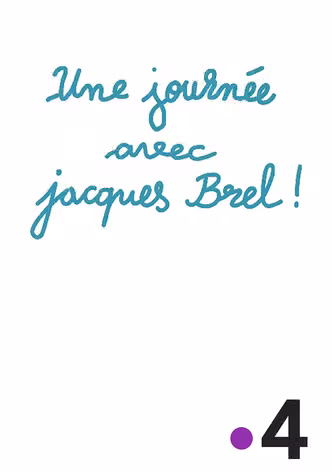 Une journée
avec
jacques Brel !
4